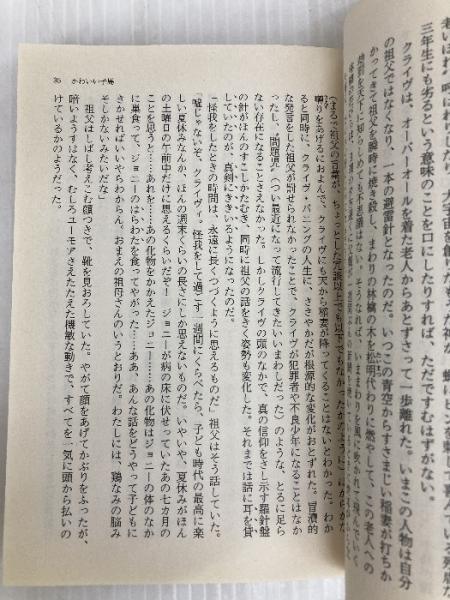 35　かわいい子馬
三年生にも劣るという意味のことを口にしたりすれば、ただですむはずがない。
クライヴは、オーバーオールを着た老人からあとずさって一歩離れた。いまこの人物は自分
の祖父ではなくなり、一本の避雷針となったのだ。いつこの青空からすさまじい稲妻が打ちか
かってきて祖父を瞬時に焼き殺し、まわりの林檎の木を松明代わりに燃やして
囀りをあげるにおよんで、クライヴにも天から稲妻が降ってくることはないとわかった。わか
ると同時に、クライヴ・バニングの人生に、ささやかだが根源的な変化がおとずれた。冒瀆的
な発言をした祖父が罰せられなかったことで、クライヴが犯罪者や不良少年になることはなか
ったし、〝問題児〟（つい最近になって流行してきたいいまわしだった）のような、とるに足ら
ない存在になることさえなかった。しかしクライヴの頭のなかで、真の信仰をさし示す羅針盤
の針がほんのすこしかたむき、同時に祖父の話をきく姿勢も変化した。それまでは話に耳を貸
していたのが、真剣にききいるようになったのだ。
「怪我をしたときの時間は、永遠に長くつづくように思えるものだ」祖父はそう話していた。
「嘘じゃないぞ、クライヴィ。怪我をして過ごす一週間にくらべたら、子ども時代の最高に楽
しい夏休みなんか、ほんの週末くらいの長さにしか思えないものだ。いやいや、夏休みがほん
の土曜日の午前中だけに思えるくらいだぞ！　ジョニーが病の床に伏せっていたあの七カ月の
ことを思うと……あれを……あの化物をかかえたジョニー……あの化物はジョニーの体のなか
に巣食って、ジョニーのはらわたを食ってやがった……ああ、あんな話をどうやって子どもに
きかせればいいやらわからん。おまえの祖母さんのいうとおりだ。わたしには、鶏なみの脳み
そしかないみたいだな」
祖父はしばし考えこむ顔つきで、靴を見おろしていた。やがて顔をあげてかぶりをふったが、
暗いようすはなく、むしろユーモアさえたたえた機敏な動きで、すべてを一気に頭から払いの
けているかのようだった。